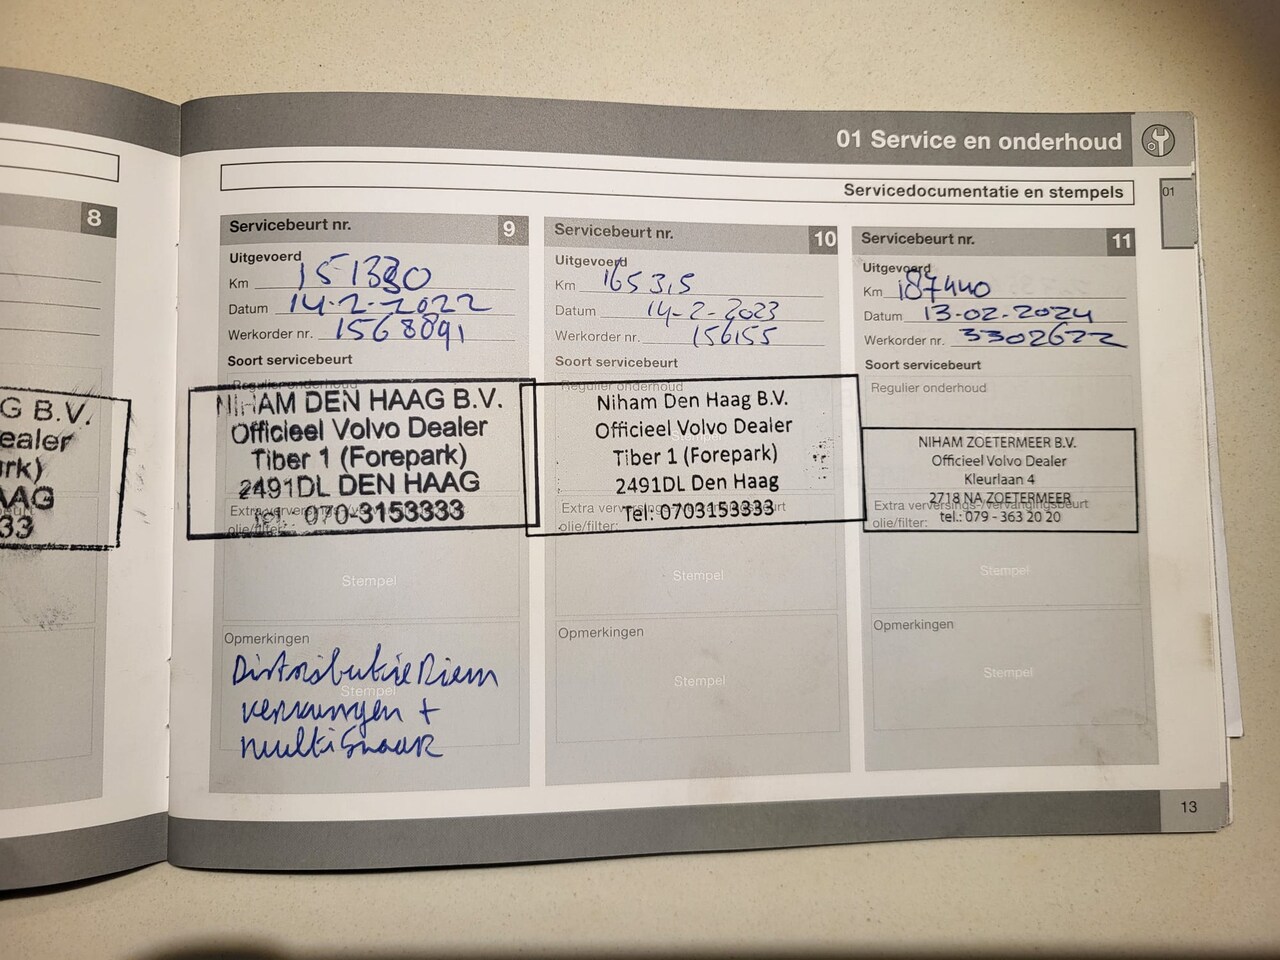 01 Service en onderhoud
Servicedocumentatie en stempels
01
8
G B.V.
ealer
ark)
AAG
33
Servicebeurt nr. 9
Uitgevoerd
Km
Datum 14-2-2022
Werkorder nr. 1568091
Soort servicebeurt
Regulier onderhoud
NIHAM DEN HAAG B.V.
Officieel Volvo Dealer
Tiber 1 (Forepark)
2491DL DEN HAAG
Extra verversings-/vervangingsbeurt
tel.: 070-3153333
olie/filter:
Stempel
Opmerkingen
DistributieRiem
Stempel
vervangen +
multisnaar
Servicebeurt nr. 10
Uitgevoerd
Km 16535
Datum 14-2-2023
Werkorder nr. 156155
Soort servicebeurt
Regulier onderhoud
Niham Den Haag B.V.
Officieel Volvo Dealer
Tiber 1 (Forepark)
2491DL Den Haag
Extra verversings-/vervangingsbeurt
Tel: 0703153333
olie/filter:
Stempel
Opmerkingen
Stempel
Servicebeurt nr. 11
Uitgevoerd
Km 187440
Datum 13-02-2024
Werkorder nr. 3302622
Soort servicebeurt
Regulier onderhoud
NIHAM ZOETERMEER B.V.
Officieel Volvo Dealer
Kleurlaan 4
2718 NA ZOETERMEER
Extra verversings-/vervangingsbeurt
tel.: 079 - 363 20 20
olie/filter:
Stempel
Opmerkingen
Stempel
13